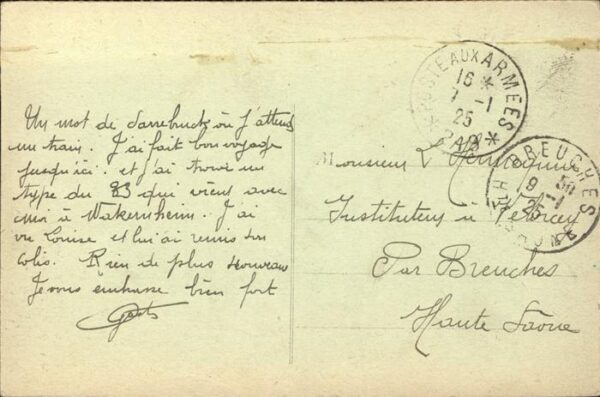 Un mot de Sarrebruck où j'attends
un train. J'ai fait bon voyage
jusqu'ici. et j'ai trouvé un
type du 23 qui vient avec
moi à Wakernheim. J'ai
vu Louise et lui ai remis son
colis. Rien de plus nouveau
Je vous embrasse bien fort
POSTE AUX ARMÉES
16 *
7 -1
25
BREUCHES
9 -1
25
HTE SAONE
Monsieur
Instituteur à
Par Breuches
Haute Saône